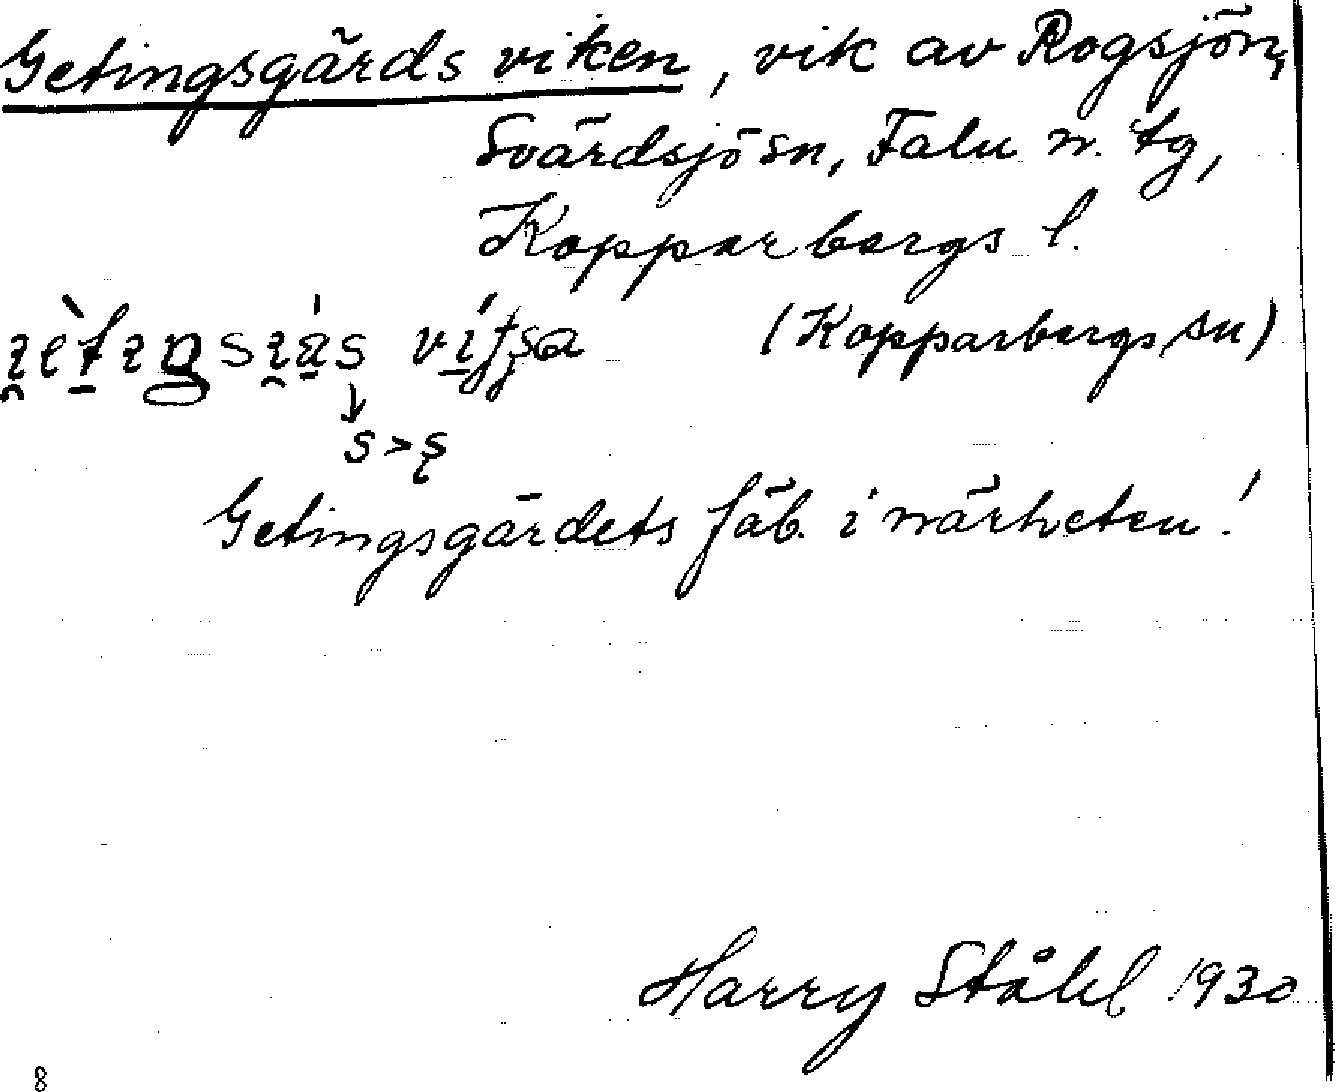 Getingsgårdsviken, vik av Rogsjön,
Svärdsjö sn, Falu n. tg,
Kopparbergs l.
(Kopparbergs sn)
s > ş
Getingsgärdets fäb. i närheten!
Harry Ståhl 1930
8